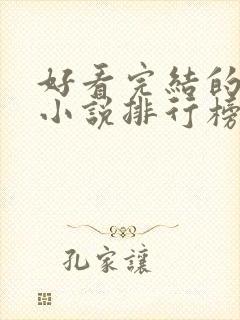 好看完結的
小說排行榜
孔家讓